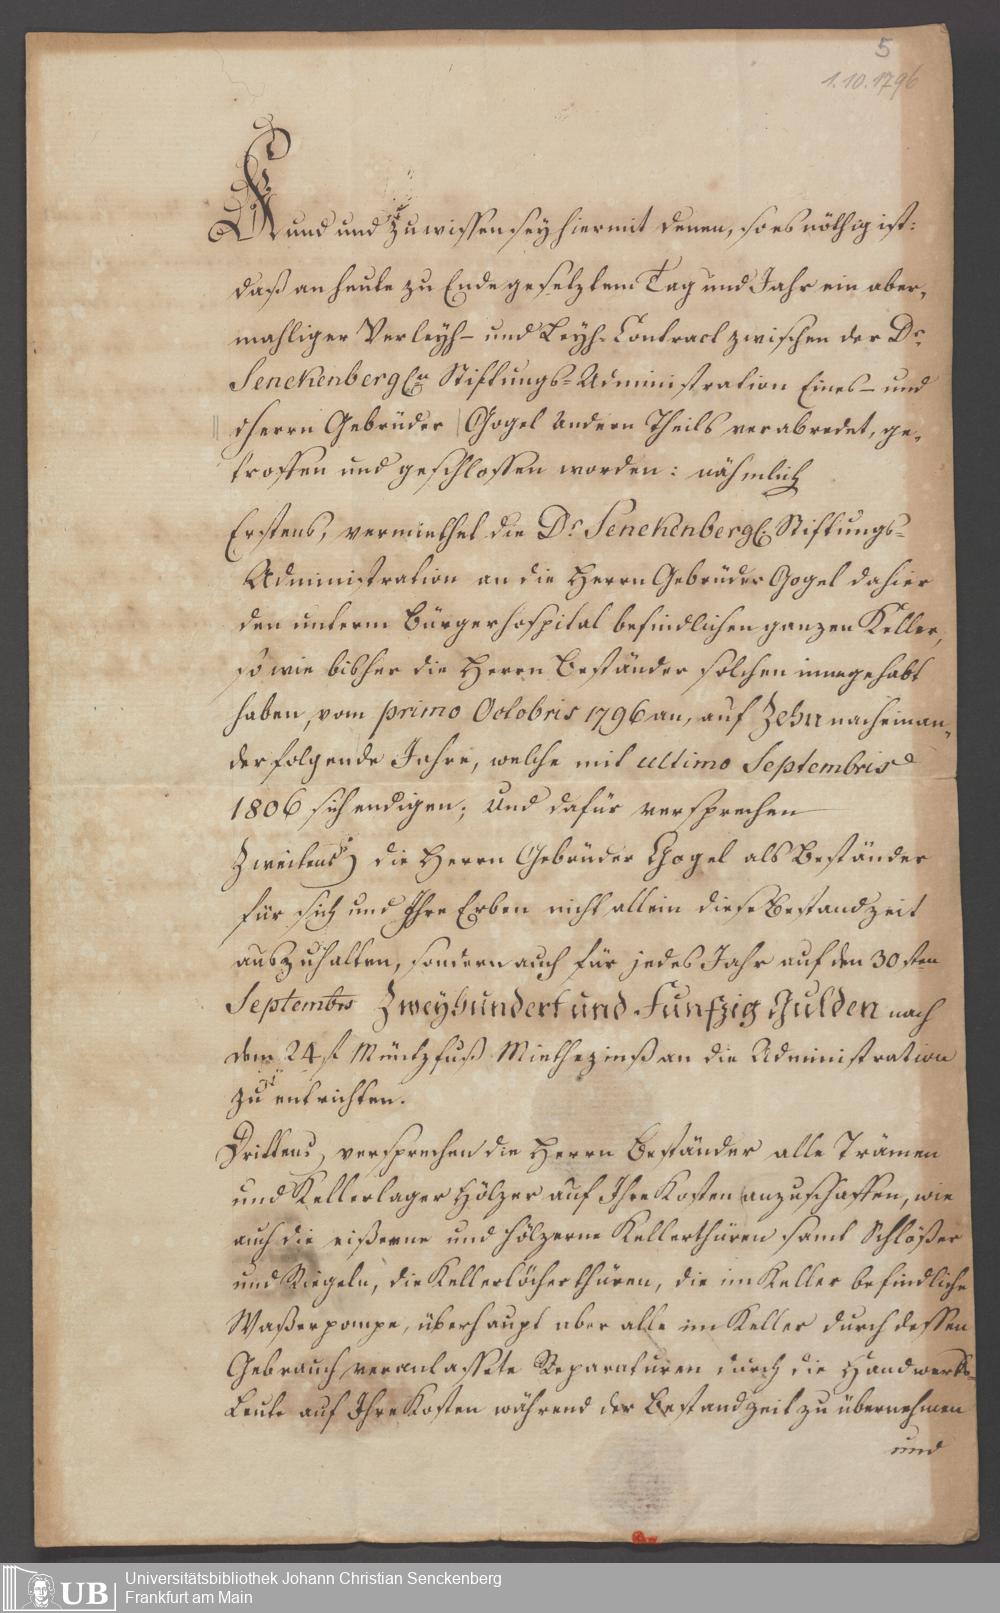 5
1.10.1796
Kund und zu wissen sey hiermit denen, so es nöthig ist:
daß an heute zu Ende gesetztem Tag und Jahr ein aber-
mahliger Verleyh- und Leyh-Contract zwischen der Dr.
Senckenbergl. Stiftungs-Administration Eines- und
dherrn Gebrüder Gogel andern Theils verabredet, ge-
troffen und geschlossen worden: nähmlich
Erstens, vermiethet die Dr. Senckenbergl. Stiftungs-
Administration an die Herrn Gebrüder Gogel dahier
den unterm Bürgerhospital befindlichen ganzen Keller,
so wie bisher die Herrn Beständer solchen inngehabt
haben, vom primo Octobris 1796 an, auf Zehn nacheinan-
der folgende Jahre, welche mit ultimo Septembris
1806 sich endigen; Und dafür versprechen
Zweitens, die Herrn Gebrüder Gogel als Beständer
für sich und Ihre Erben nicht allein diese Bestandzeit
auszuhalten, sondern auch für jedes Jahr auf den 30sten
Septembris Zweyhundert und Funfzig Gulden nach
dem 24 f Müntzfuß Miethezinß an die Administration
zu entrichten.
Drittens, versprechen die Herrn Beständer alle Trämen
und Kellerlager Hölzer auf Ihre Kosten anzuschaffen, wie
auch die eißerne und hölzerne Kellerthüren samt Schlößer
und Riegeln, die Kellerlöcherthüren, die im Keller befindliche
Waßerpompe, überhaupt aber alle im Keller durch dessen
Gebrauch veranlassete Reparaturen durch die Handwerks-
Leute auf Ihre Kosten während der Bestandzeit zu übernehmen
und
UB
Universitätsbibliothek Johann Christian Senckenberg
Frankfurt am Main